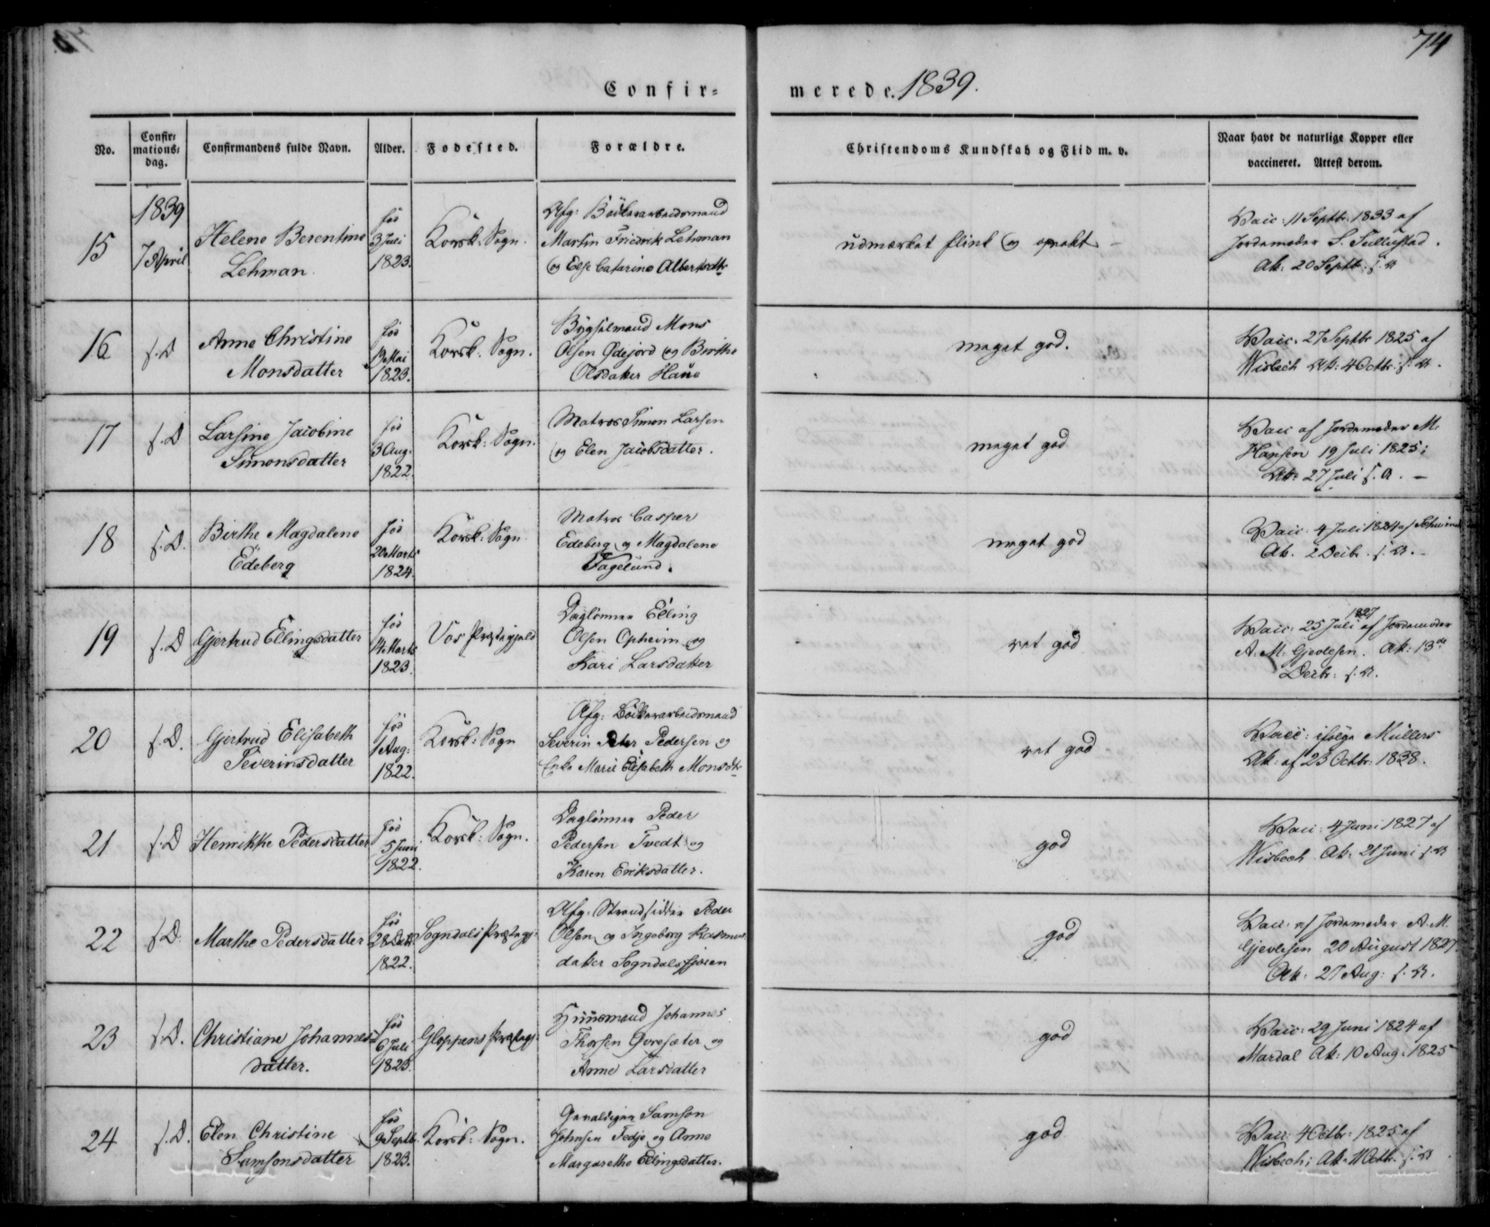 74
Confir= merede. 1839.
No.
Confir=
mations=
dag.
Confirmandens fulde Navn.
Alder.
Fodested.
Forældre.
Christendoms Kundskab og Flid m. v.
Naar havt de naturlige Kopper eller
vaccineret. Attest derom.
1839
15
7 April
Helene Berentine
Lehman
fød
3 Juli
1823.
Korsk: Sogn.
Afg: Bödkerarbeidsmand
Martin Fridrik Lehman
og Else Catarina Albertsdtr
udmærket flink og oprakt –
Vacc: 11 Septb: 1833 af
Jordemoder S. Sullestad.
At: 20 Septb: s. A
16
s. D
Anne Christine
Monsdatter
fød
Mai
1823.
Korsk: Sogn.
Bygselmand Mons
Olsen Ødejord og Birthe
Olsdatter Haue
meget god.
Vacc. 27 Septb 1825 af
Wisbech At: 4 Octb: s. A.
17
s. D
Larsine Jacobine
Simonsdatter
fød
3 Aug.
1822.
Korsk: Sogn.
Matros Simon Larsen
og Elen Jacobsdatter.
meget god
Vacc af Jordemoder M.
Hansen 19 Juli 1825;
At: 27 Juli s. A. –
18
s. D.
Birthe Magdalene
Edeberg
fød
20 Marts
1824.
Korsk: Sogn
Matros Casper
Edeberg og Magdalene
Fagelund.
meget god
Vacc: 4 Juli 1824 af
At. 2 Decb. s. A. –
19
s. D
Gjertrud Ellingsdatter
fød
14 Marts
1823.
Vos Præstegjeld
Daglönner Elling
Olsen Opheim og
Kari Larsdatter
ret god
1827
Vacc: 25 Juli af Jordemoder
A. M. Gjertsen. At: 13de
Decb: s. A.
20
s. D.
Gjertrud Elisabeth
Severinsdatter
fød
1 Aug:
1822.
Korsk: Sogn
Afg: Bödkerarbeidsmand
Severin Peter Pedersen og
Enke Marie Elisabeth Monsdtr
ret god
Vacc: ifølge Müllers
At: af 23 Octb: 1838.
21
s. D
Henrikke Pedersdatter
fød
5 Juni
1822.
Korsk: Sogn.
Daglönner Peder
Pedersen Tvedt og
Karen Eriksdatter.
god
Vacc: 4 Juni 1827 af
Wisbech. At: 21 Juni s. A
22
s. D.
Marthe Pedersdatter
fød
28 Dec
1822.
Sogndals Præstegj:
Afg: Strandsidder Peder
Olsen og Ingeborg Rasmus
datter Sogndalsfjæren
god
Vacc: af Jordemoder A. M.
Gjertsen 20 August 1827
At: 27 Aug: s. A.
23
s. D.
Christiane Johannes
datter.
fød
6 Juli
1823.
Gloppens Præstegj:
Huusmand Johannes
Thorsen Goresæter og
Anne Larsdatter
god
Vacc: 29 Juni 1824 af
Mardal At: 10 Aug: 1825
24
s. D.
Elen Christine
Samsonsdatter
fød
9 Septb
1823.
Korsk: Sogn.
Gevaldiger Samson
Johnsen Tedje og Anne
Margarethe Ellingsdatter.
god
Vacc: 4 Octb: 1825 af
Wisbech; At: 11 Octb: s. A